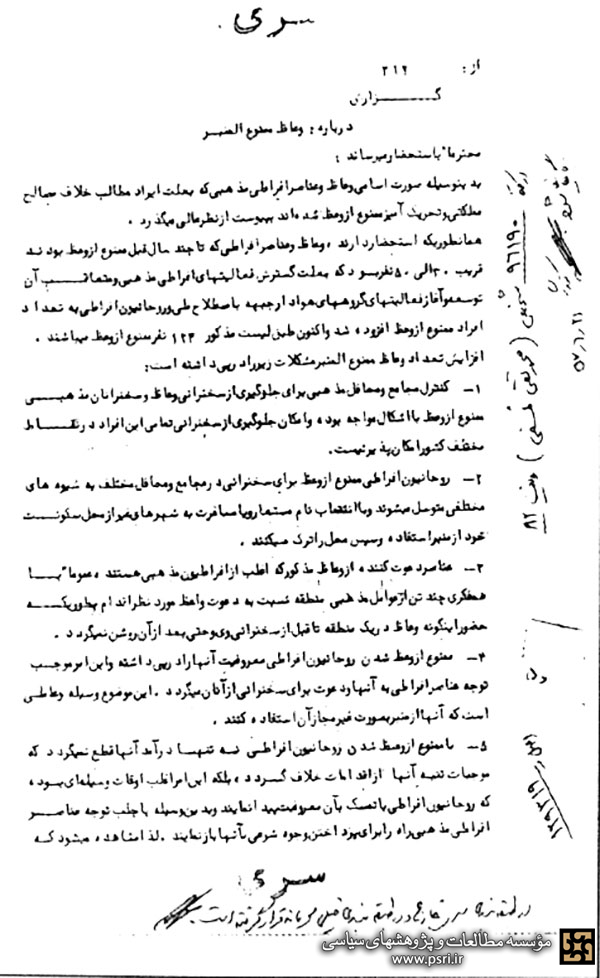 سری
از : ۳۱۲
گــــزارش
درباره : وعاظ ممنوع المنبر
محترما" باستحضار میرساند :
بدینوسیله صورت اسامی وعاظ و عناصر افراطی مذهبی که بعلت ایراد مطالب خلاف مصالح
مملکتی و تحریک آمیز ممنوع از وعظ شده اند بپیوست از نظر عالی میگذرد .
همانطوریکه استحضار دارند ، وعاظ و عناصر افراطی که تا چند سال قبل ممنوع از وعظ بودند
قریب ۳۰ الی ۵۰ نفر بود که بعلت گسترش فعالیتهای افراطی مذهبی و متعاقـب آن
توسعه و آغاز فعالیتهای گروههای هوادار جبهه باصطلاح ملی و روحانیون افراطی به تعداد
افراد ممنوع از وعظ افزوده شد و اکنون طبق لیست مذکور ۱۲۳ نفر ممنوع از وعظ میباشند .
افزایش تعداد وعاظ ممنوع المنبر مشکلات زیر را در پی داشته است:
۱- کنترل مجامع و محافل مذهبی برای جلوگیری از سخنرانی وعاظ و سخنرانان مذهبـی
ممنوع از وعظ با اشکال مواجه بوده و امکان جلوگیری از سخنرانی تمامی این افراد در نقــاط
مختلف کشور امکان پذیر نیست.
۲- روحانیون افراطی ممنوع از وعظ برای سخنرانی در مجامع و محافل مختلف به شیوه های
مختلفی متوسل میشوند و با انتخاب نام مستعار و یا مسافرت به شهرهای غیر از محل سکونـت
خود از منبر استفاده و سپس محل را ترک میکنند .
۳- عناصر دعوت کننده از وعاظ مذکور که اغلب از افراطیون مذهبی هستند ، عموما" بـا
همفکری چند تن از عوامل مذهبی منطقه نسبت به دعوت واعظ مورد نظر اقدام بطوریکـه
حضور اینگونه وعاظ در یک منطقه تا قبل از سخنرانی وی و حتی بعد از آن روشن نمیگردد .
۴- ممنوع از وعظ شدن روحانیون افراطی معروفیت آنها را در پی داشته و این امر موجـب
توجه عناصر افراطی به آنها و دعوت برای سخنرانی از آنان میگردد . این موضوع وسیله و عاملی
است که آنها از منبر بصورت غیر مجاز آن استفاده کنند .
۵- با ممنوع از وعظ شدن روحانیون افراطـی نـه تنهـا درآمد آنها قطع نمیگردد که
موجبات تنبه آنها از اقدامات خلاف گردد ، بلکه این امر اغلب اوقات وسیله ای بوده
که روحانیون افراطی با تمسک بآن معروفیت پیدا نمایند و بدین وسیله با جلب توجه عناصـر
افراطی مذهبی راه را برای پرداختن وجوه شرعی بآنها باز نمایند . لذا مشاهده میشود کـه
سری
۹۶۱۹۰
(محمد تقی فلسفی)
۸۲
۵۷,۶,۲۱
مؤسسه مطالعات و پژوهشهای سیاسی
www.psri.ir